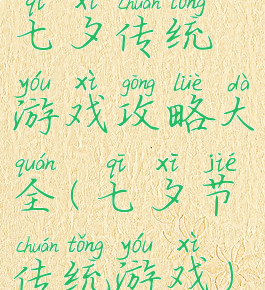 qī xī chuán tǒng
七夕传统
yóu xì gōng lüè dà
游戏攻略大
quán qī xī jié
全(七夕节
chuán tǒng yóu xì
传统游戏)